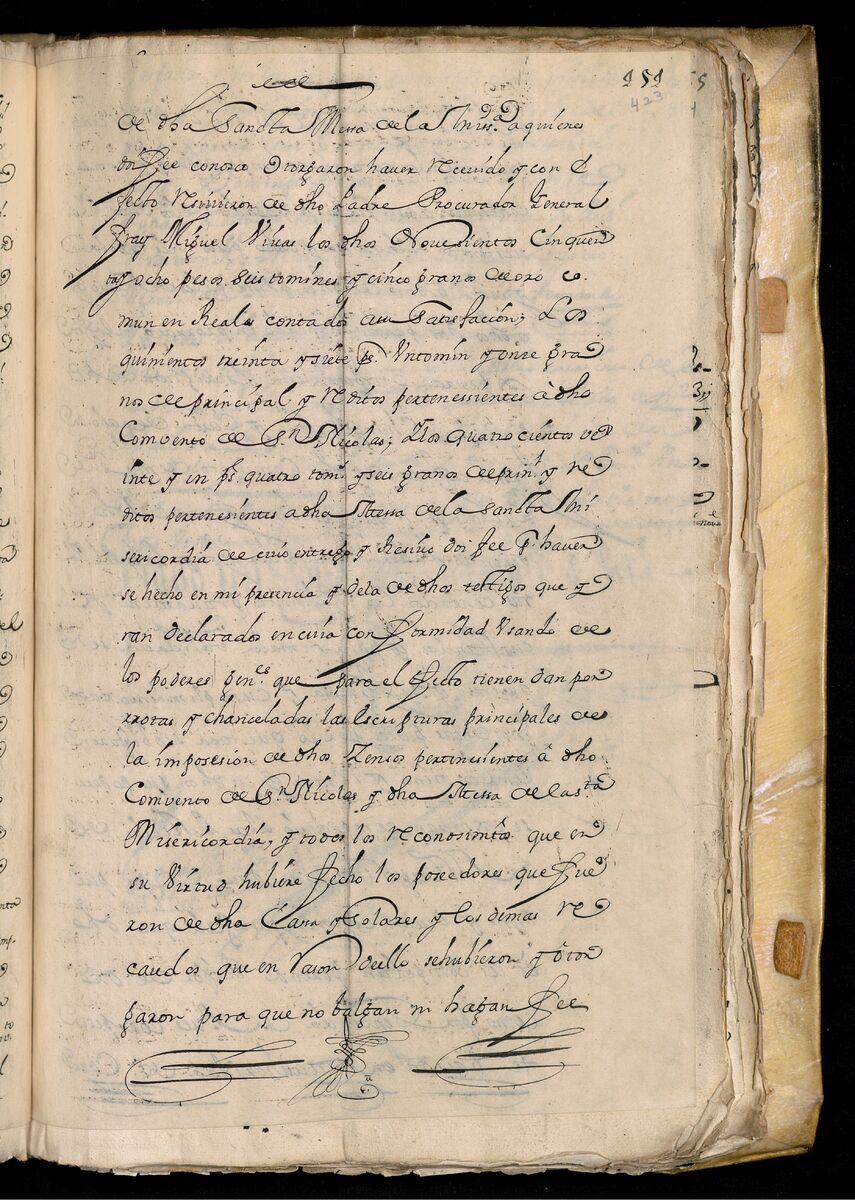 151
423
de dha Sancta Messa de la Misª. a quienes
doi fee conosco Otorgaron haver Recevido y con e
fecto Resivieron de dho Padre Procurador General
fray Miguel Vivas los dhos Novesientos Cinquen
ta y ocho pesos seis tomines y cinco granos de oro co
mun en Reales contados a su Satisfacción; Los
quinientos treinta y siete ps. Un tomin y onse gra
nos de principal y Reditos pertenessientes à dho
Comvento de Sn. Nicolas; Y los quatrocientos ve
inte y un ps. quatro tom. y seis granos de prinl. y re
ditos pertenesientes a dha Messa de la Sancta Mi
sericordia de cuio entrego y Resivo doi fee pr. haver
se hecho en mi presencia y de la de dhos testigos que y
ran declarados en cuia conformidad Usando de
los poderes genes. que para el efecto tienen dan por
rrotas y chanceladas las Escripturas principales de
la imposesion de dhos Zensos pertenesientes â dho
Comvento de Sn. Nicolas y dha Messa de la sta.
Misericordia, y todos los reconosimtos. que en
su Virtud hubiere fecho los poseedores que fue
ron de dha Casa y Solares y los demas Re
caudos que en Rason de ello se hubieron y ótor
garon para que no balgan ni hagan fee